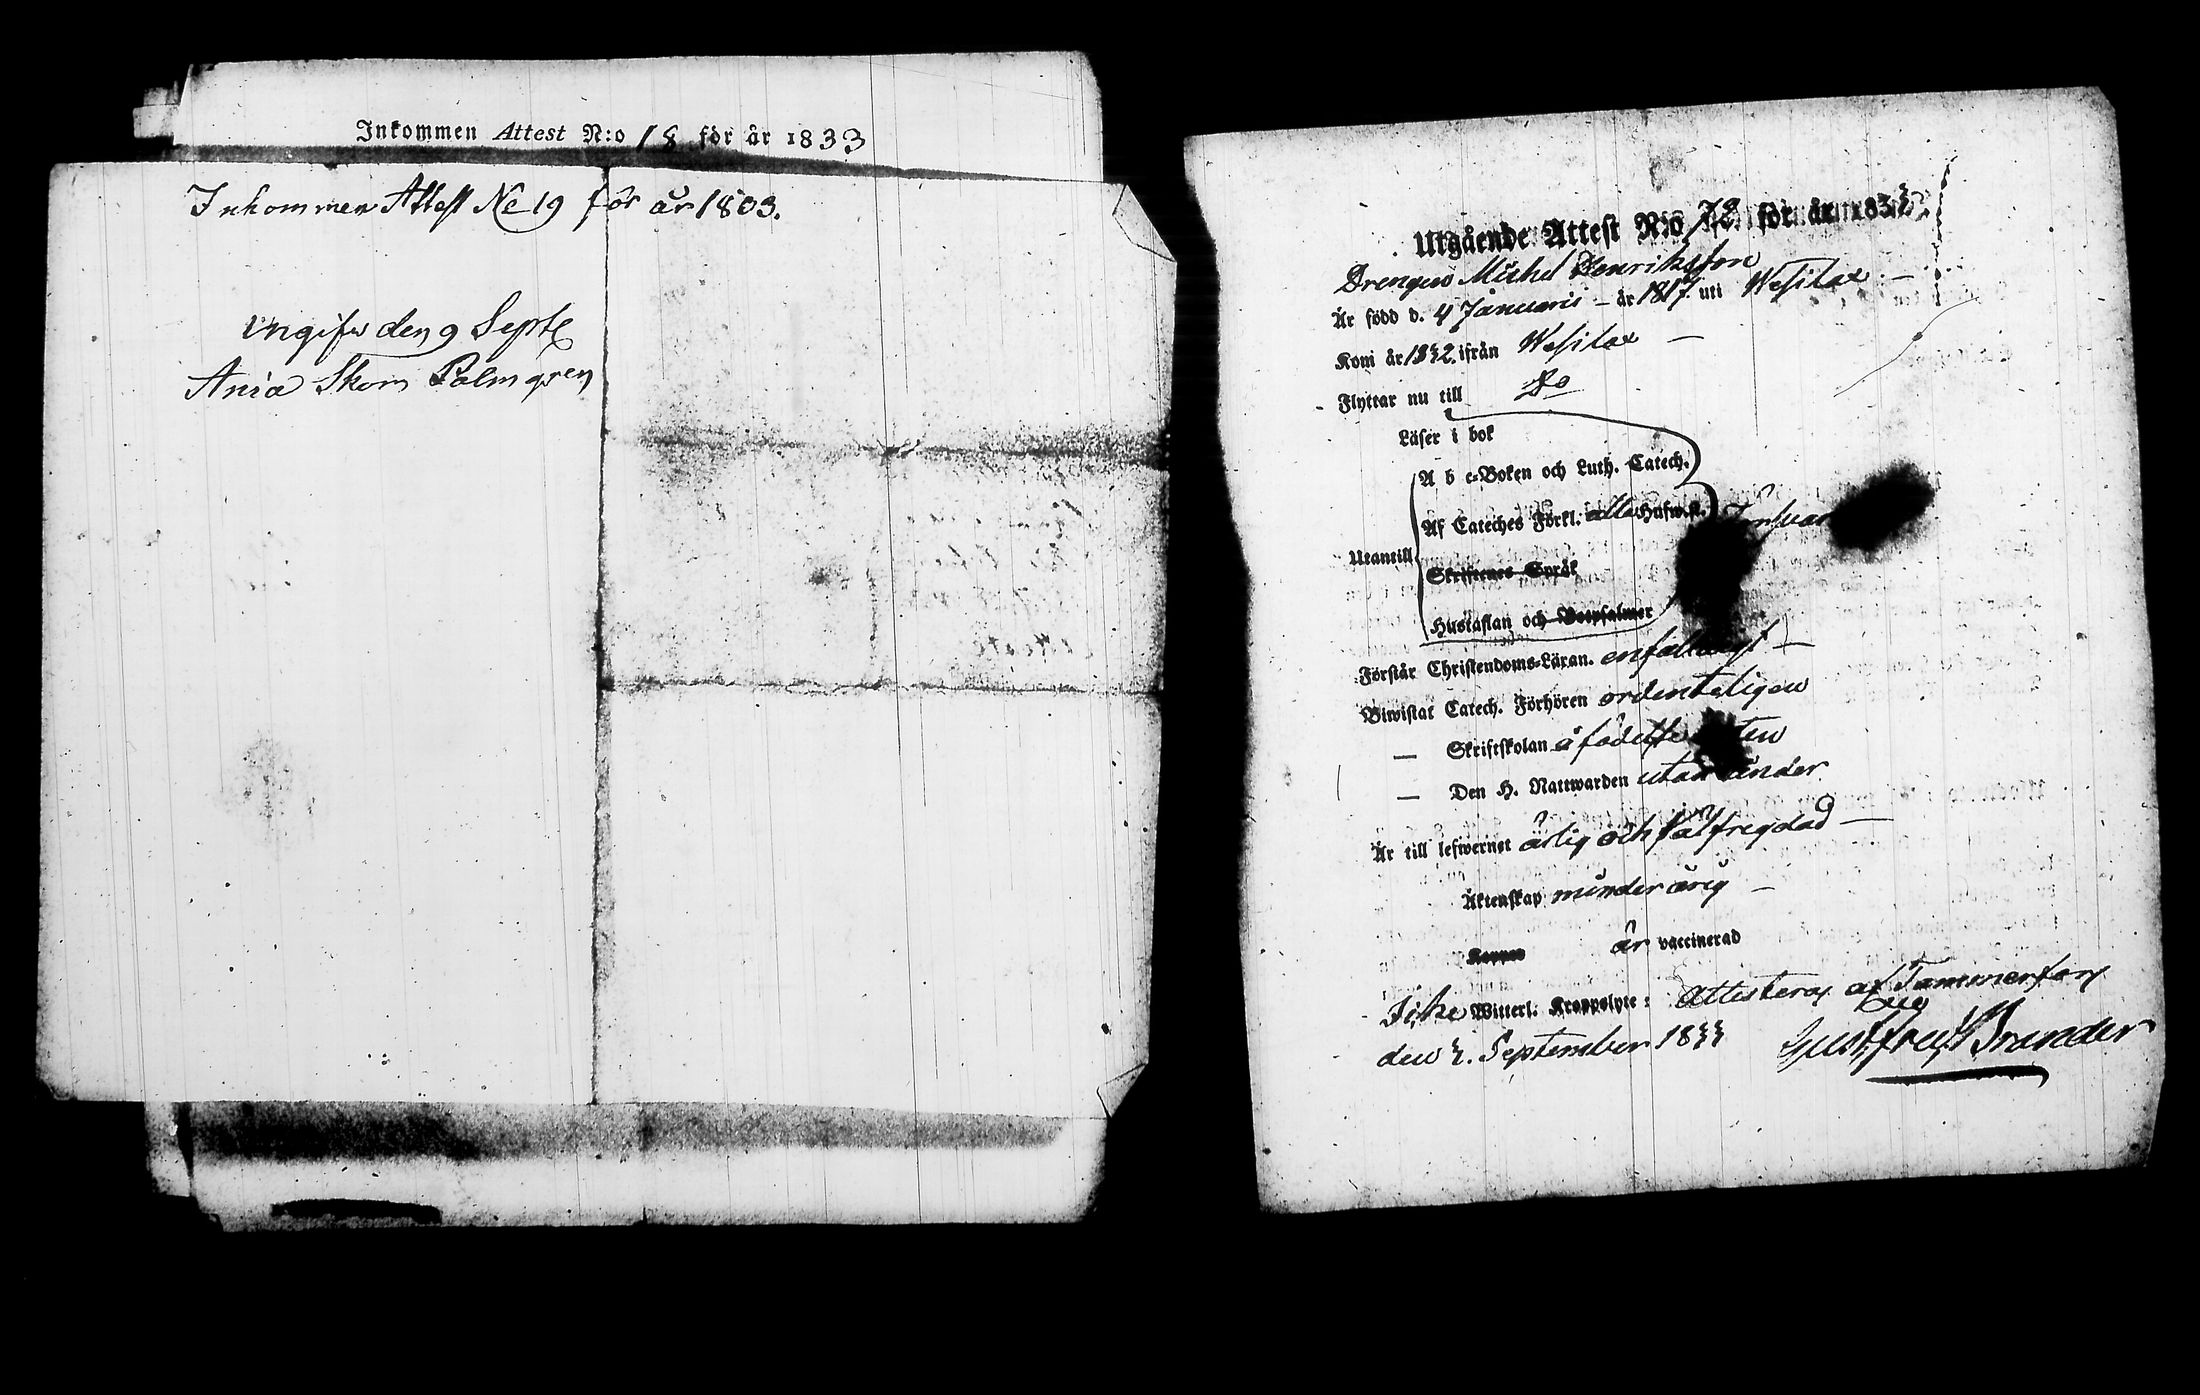 Inkommen Attest N:o 18 för år 1833
Inkommen Attest No 19 för år 1803.
den 9 Sept
Palmgren
Utgående Attest N:o 72 för år 1833
Drengen Michel Henriksson
Är född d. 4 Januarii – år 1817 uti Wesilax –
Kom år 1832 ifrån Wesilax –
Flyttar nu till Do
Läser i bok
A b c-Boken och Luth. Catech.
Af Cateches Förkl. alla Hufw.st.
Utantill
Skriftenes Språk
Hustaflan och Botpsalmer
Förstår Christendoms-Läran. enfaldigt –
Biwistat Catech. Förhören ordenteligen
— Skriftskolan å födelse orten
— Den H. Nattwarden utan änder
Är till lefwernet ärlig och välfregdad —
Äktenskap minder årig –
Koppor är vaccinerad
Icke Witterl. Kroppslyte: Attesteras af Tammerfors
den 3. September 1833 Gust. Fredr. Brander